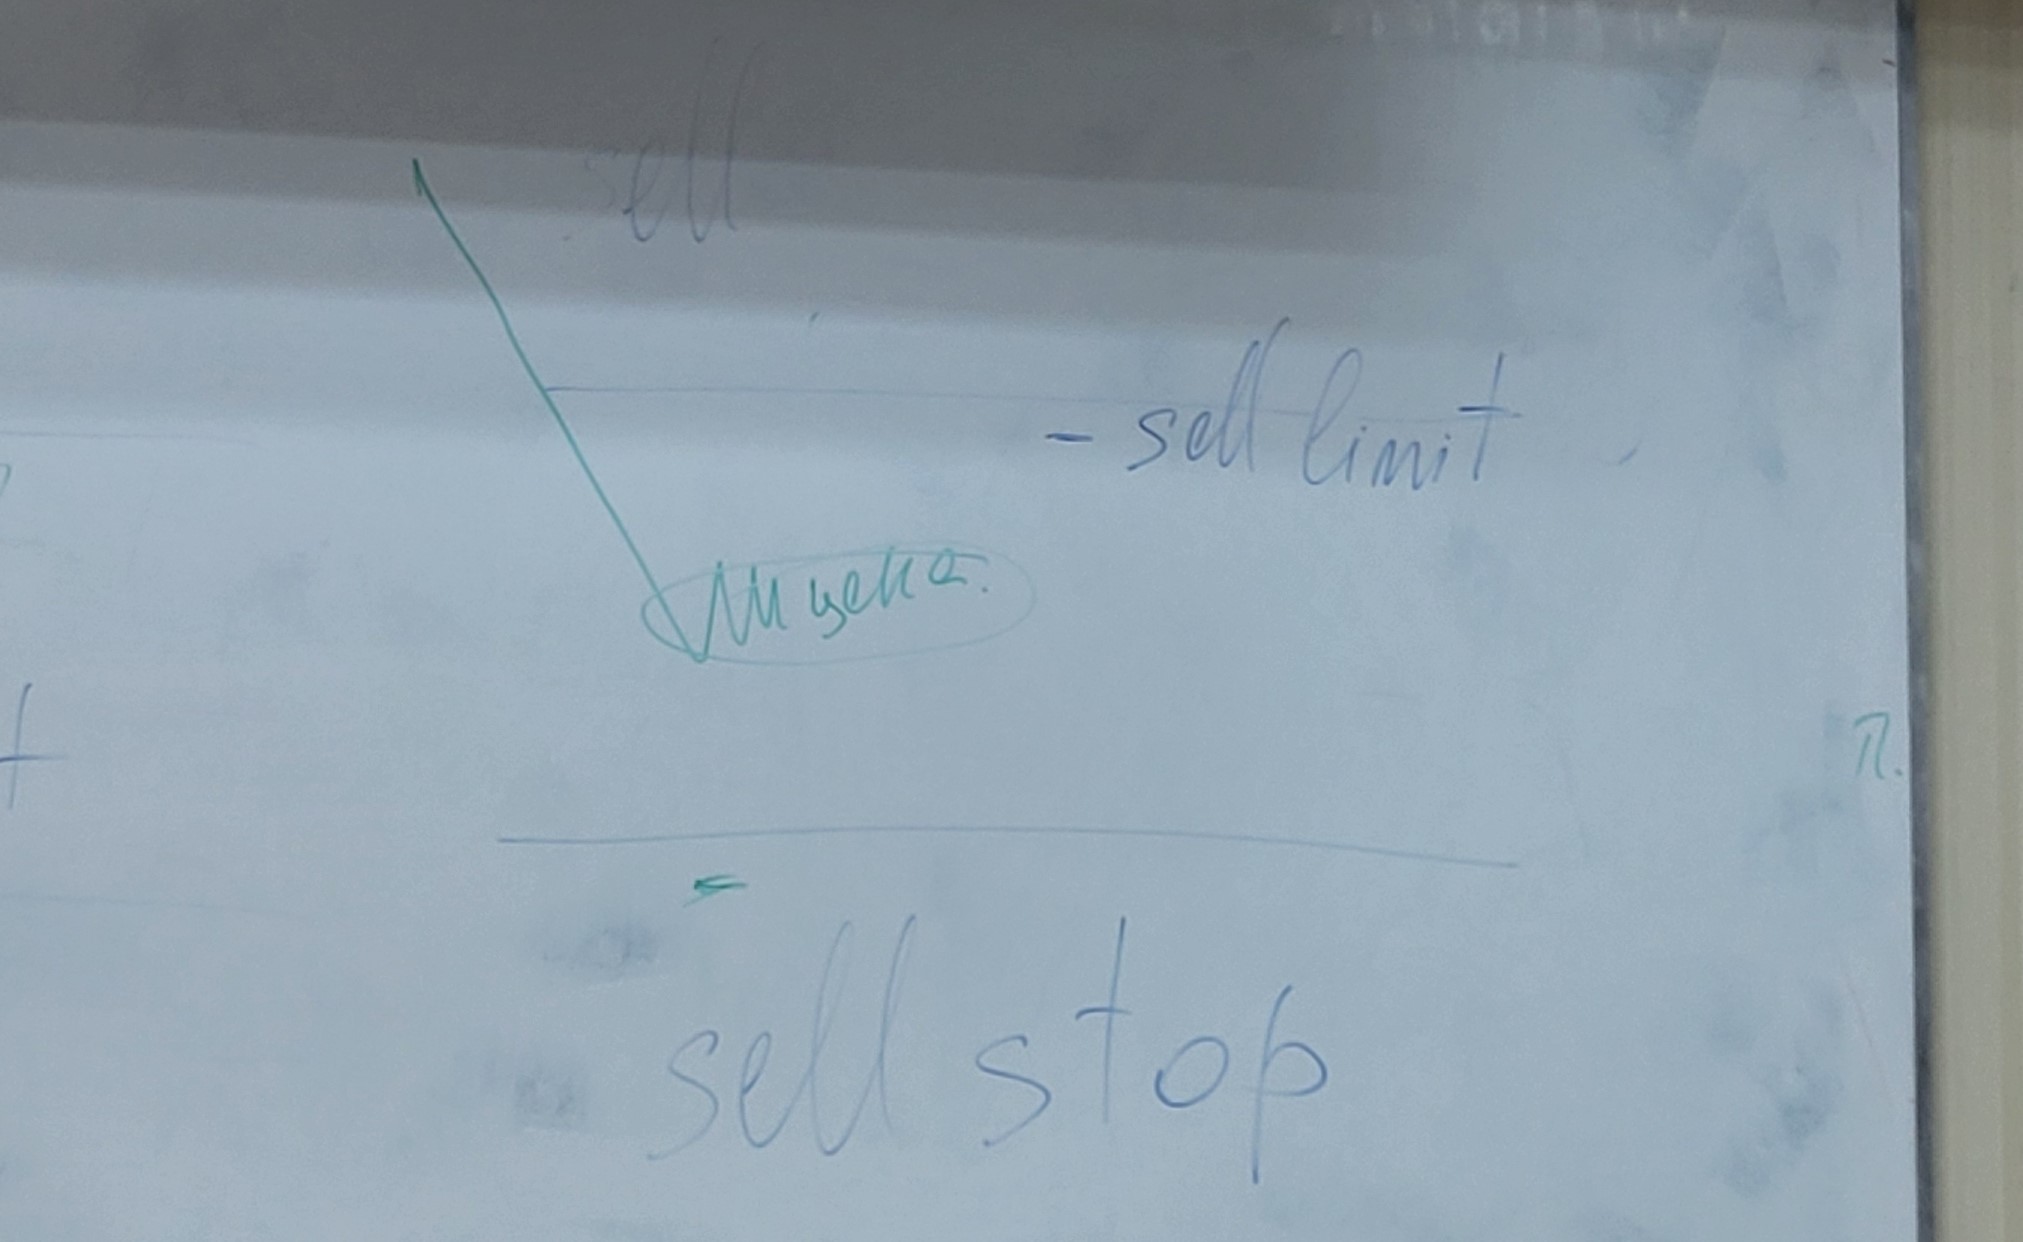 sell
- sell limit
цена.
п.
sell stop